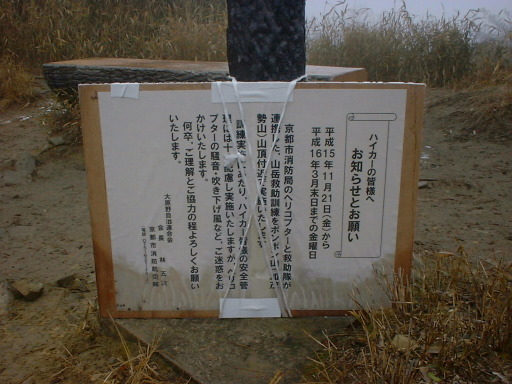 ハイカーの皆様へ
お知らせとお願い
平成15年11月21日(金)から
平成16年3月末日までの金曜日
京都市消防局のヘリコプターと救助隊が
連携した、山岳救助訓練をポンポン山(加茂
勢山)山頂付近で実施いたします。
訓練実施にあたり、ハイカー皆様の安全管
理には十分配慮し実施いたしますが、ヘリコ
プターの騒音・吹き下げ風など、ご迷惑をお
かけいたします。
何卒、ご理解とご協力の程よろしくお願い
いたします。
大原野自治連合会
会長 林
京都市消防局